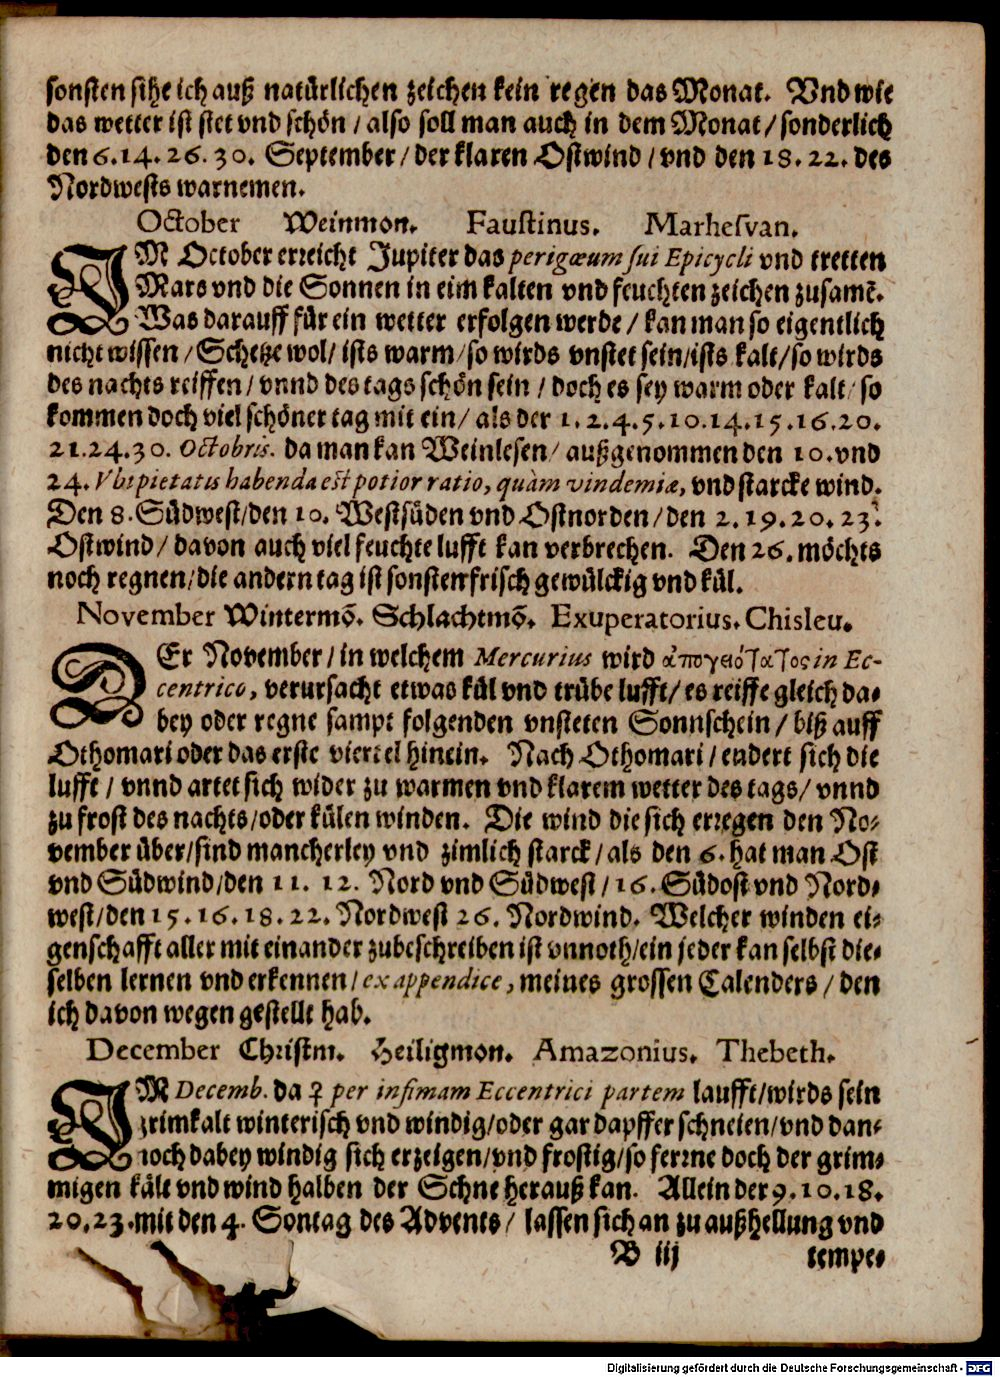 sonsten sihe ich auß natürlichen zeichen kein regen das Monat. Vnd wie
das wetter ist stet vnd schön / also soll man auch in dem Monat / sonderlich
den 6. 14. 26. 30. September / der klaren Ostwind / vnd den 18. 22. des
Nordwests warnemen.
October Weinmon. Faustinus. Marhesvan.
IM October erreicht Jupiter das perigæum sui Epicycli vnd tretten
Mars vnd die Sonnen in eim kalten vnd feuchten zeichen zusamē.
Was darauff für ein wetter erfolgen werde / kan man so eigentlich
nicht wissen / Schetze wol / ists warm / so wirds vnstet sein / ists kalt / so wirds
des nachts reiffen / vnnd des tags schön sein / doch es sey warm oder kalt / so
kommen doch viel schöner tag mit ein / als der 1. 2. 4. 5. 10. 14. 15. 16. 20.
21. 24. 30. Octobris. da man kan Weinlesen / außgenommen den 10. vnd
24. Vbi pietatis habenda est potior ratio, quàm vindemiæ, vnd starcke wind.
Den 8. Südwest / den 10. Westsüden vnd Ostnorden / den 2. 19. 20. 23.
Ostwind / davon auch viel feuchte lufft kan verbrechen. Den 26. möchts
noch regnen / die andern tag ist sonsten frisch gewülckig vnd kül.
November Wintermō. Schlachtmō. Exuperatorius. Chisleu.
DEr November / in welchem Mercurius wird ἀπογειότατος in Ec-
centrico, verursacht etwas kül vnd trübe lufft / es reiffe gleich da-
bey oder regne sampt folgenden vnsteten Sonnschein / biß auff
Othomari oder das erste viertel hinein. Nach Othomari / endert sich die
lufft / vnnd artet sich wider zu warmen vnd klarem wetter des tags / vnnd
zu frost des nachts / oder külen winden. Die wind die sich erregen den No-
vember über / sind mancherley vnd zimlich starck / als den 6. hat man Ost
vnd Südwind / den 11. 12. Nord vnd Südwest / 16. Südost vnd Nord-
west / den 15. 16. 18. 22. Nordwest 26. Nordwind. Welcher winden ei-
genschafft aller mit einander zubeschreiben ist vnnoth / ein jeder kan selbst die-
selben lernen vnd erkennen / ex appendice, meines grossen Calenders / den
ich davon wegen gestellt hab.
December Christm. Heiligmon. Amazonius. Thebeth.
IM Decemb. da ♀ per infimam Eccentrici partem laufft / wirds sein
grimkalt winterisch vnd windig / oder gar dapffer schneien / vnd dan-
noch dabey windig sich erzeigen / vnd frostig / so ferrne doch der grim-
migen kält vnd wind halben der Schne herauß kan. Allein der 9. 10. 18.
20. 23. mit den 4. Sontag des Advents / lassen sich an zu außhellung vnd
B iij tempe-
Digitalisierung gefördert durch die Deutsche Forschungsgemeinschaft - DFG